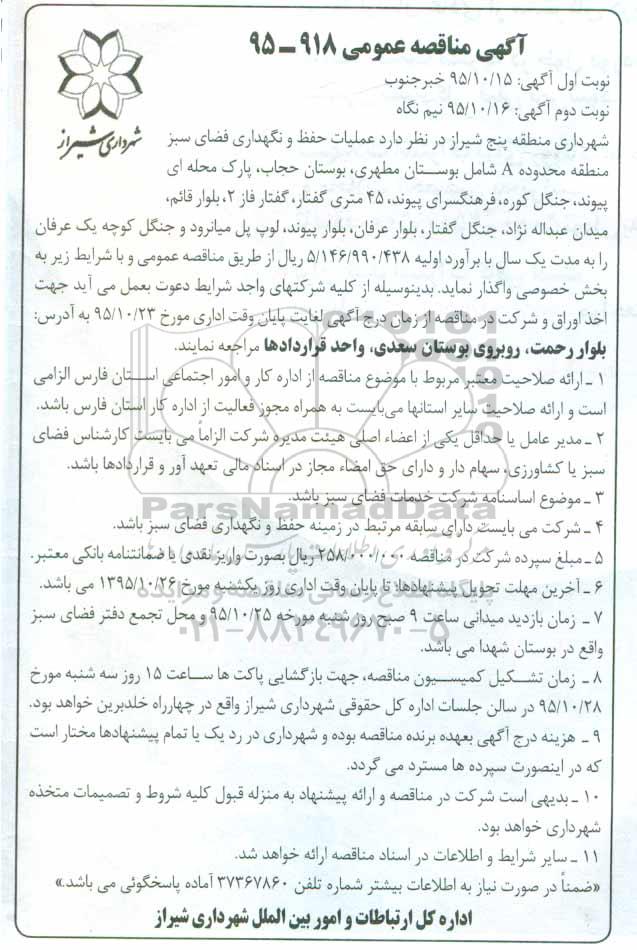 آگهی مناقصه عمومی ۹۱۸ ــ ۹۵
نوبت اول آگهی: ۹۵/۱۰/۱۵ خبرجنوب
نوبت دوم آگهی: ۹۵/۱۰/۱۶ نیم نگاه
شهرداری شیراز
شهرداری منطقه پنج شیراز در نظر دارد عملیات حفظ و نگهداری فضای سبز
منطقه محدوده A شامل بوستان مطهری، بوستان حجاب، پارک محله ای
پیوند، جنگل کوره، فرهنگسرای پیوند، ۴۵ متری گفتار، گفتار فاز ۲، بلوار قائم،
میدان عبداله نژاد، جنگل گفتار، بلوار عرفان، بلوار پیوند، لوپ پل میانرود و جنگل کوچه یک عرفان
را به مدت یک سال با برآورد اولیه ۵/۱۴۶/۹۹۰/۴۳۸ ریال از طریق مناقصه عمومی و با شرایط زیر به
بخش خصوصی واگذار نماید. بدینوسیله از کلیه شرکتهای واجد شرایط دعوت بعمل می آید جهت
اخذ اوراق و شرکت در مناقصه از زمان درج آگهی لغایت پایان وقت اداری مورخ ۹۵/۱۰/۲۳ به آدرس:
بلوار رحمت، روبروی بوستان سعدی، واحد قراردادها مراجعه نمایند.
۱ ـ ارائه صلاحیت معتبر مربوط با موضوع مناقصه از اداره کار و امور اجتماعی استان فارس الزامی
است و ارائه صلاحیت سایر استانها می‌بایست به همراه مجوز فعالیت از اداره کار استان فارس باشد.
۲ ـ مدیر عامل یا حداقل یکی از اعضاء اصلی هیئت مدیره شرکت الزاماً می بایست کارشناس فضای
سبز یا کشاورزی، سهام دار و دارای حق امضاء مجاز در اسناد مالی تعهد آور و قراردادها باشد.
۳ ـ موضوع اساسنامه شرکت خدمات فضای سبز باشد.
ParsNamadData
۴ ـ شرکت می بایست دارای سابقه مرتبط در زمینه حفظ و نگهداری فضای سبز باشد.
۵ ـ مبلغ سپرده شرکت در مناقصه ۲۵۸/۰۰۰/۰۰۰ ریال بصورت واریز نقدی یا ضمانتنامه بانکی معتبر.
۶ ـ آخرین مهلت تحویل پیشنهادها؛ تا پایان وقت اداری روز یکشنبه مورخ ۱۳۹۵/۱۰/۲۶ می باشد.
۷ ـ زمان بازدید میدانی ساعت ۹ صبح روز شنبه مورخه ۹۵/۱۰/۲۵ و محل تجمع دفتر فضای سبز
۰۲۱-۸۸۳۴۹۶۷۰-۵
واقع در بوستان شهدا می باشد.
۸ ـ زمان تشکیل کمیسیون مناقصه، جهت بازگشایی پاکت ها ساعت ۱۵ روز سه شنبه مورخ
۹۵/۱۰/۲۸ در سالن جلسات اداره کل حقوقی شهرداری شیراز واقع در چهارراه خلدبرین خواهد بود.
۹ ـ هزینه درج آگهی بعهده برنده مناقصه بوده و شهرداری در رد یک یا تمام پیشنهادها مختار است
که در اینصورت سپرده ها مسترد می گردد.
۱۰ ـ بدیهی است شرکت در مناقصه و ارائه پیشنهاد به منزله قبول کلیه شروط و تصمیمات متخذه
شهرداری خواهد بود.
۱۱ ـ سایر شرایط و اطلاعات در اسناد مناقصه ارائه خواهد شد.
«ضمناً در صورت نیاز به اطلاعات بیشتر شماره تلفن ۳۷۳۶۷۸۶۰ آماده پاسخگوئی می باشد.»
اداره کل ارتباطات و امور بین الملل شهرداری شیراز